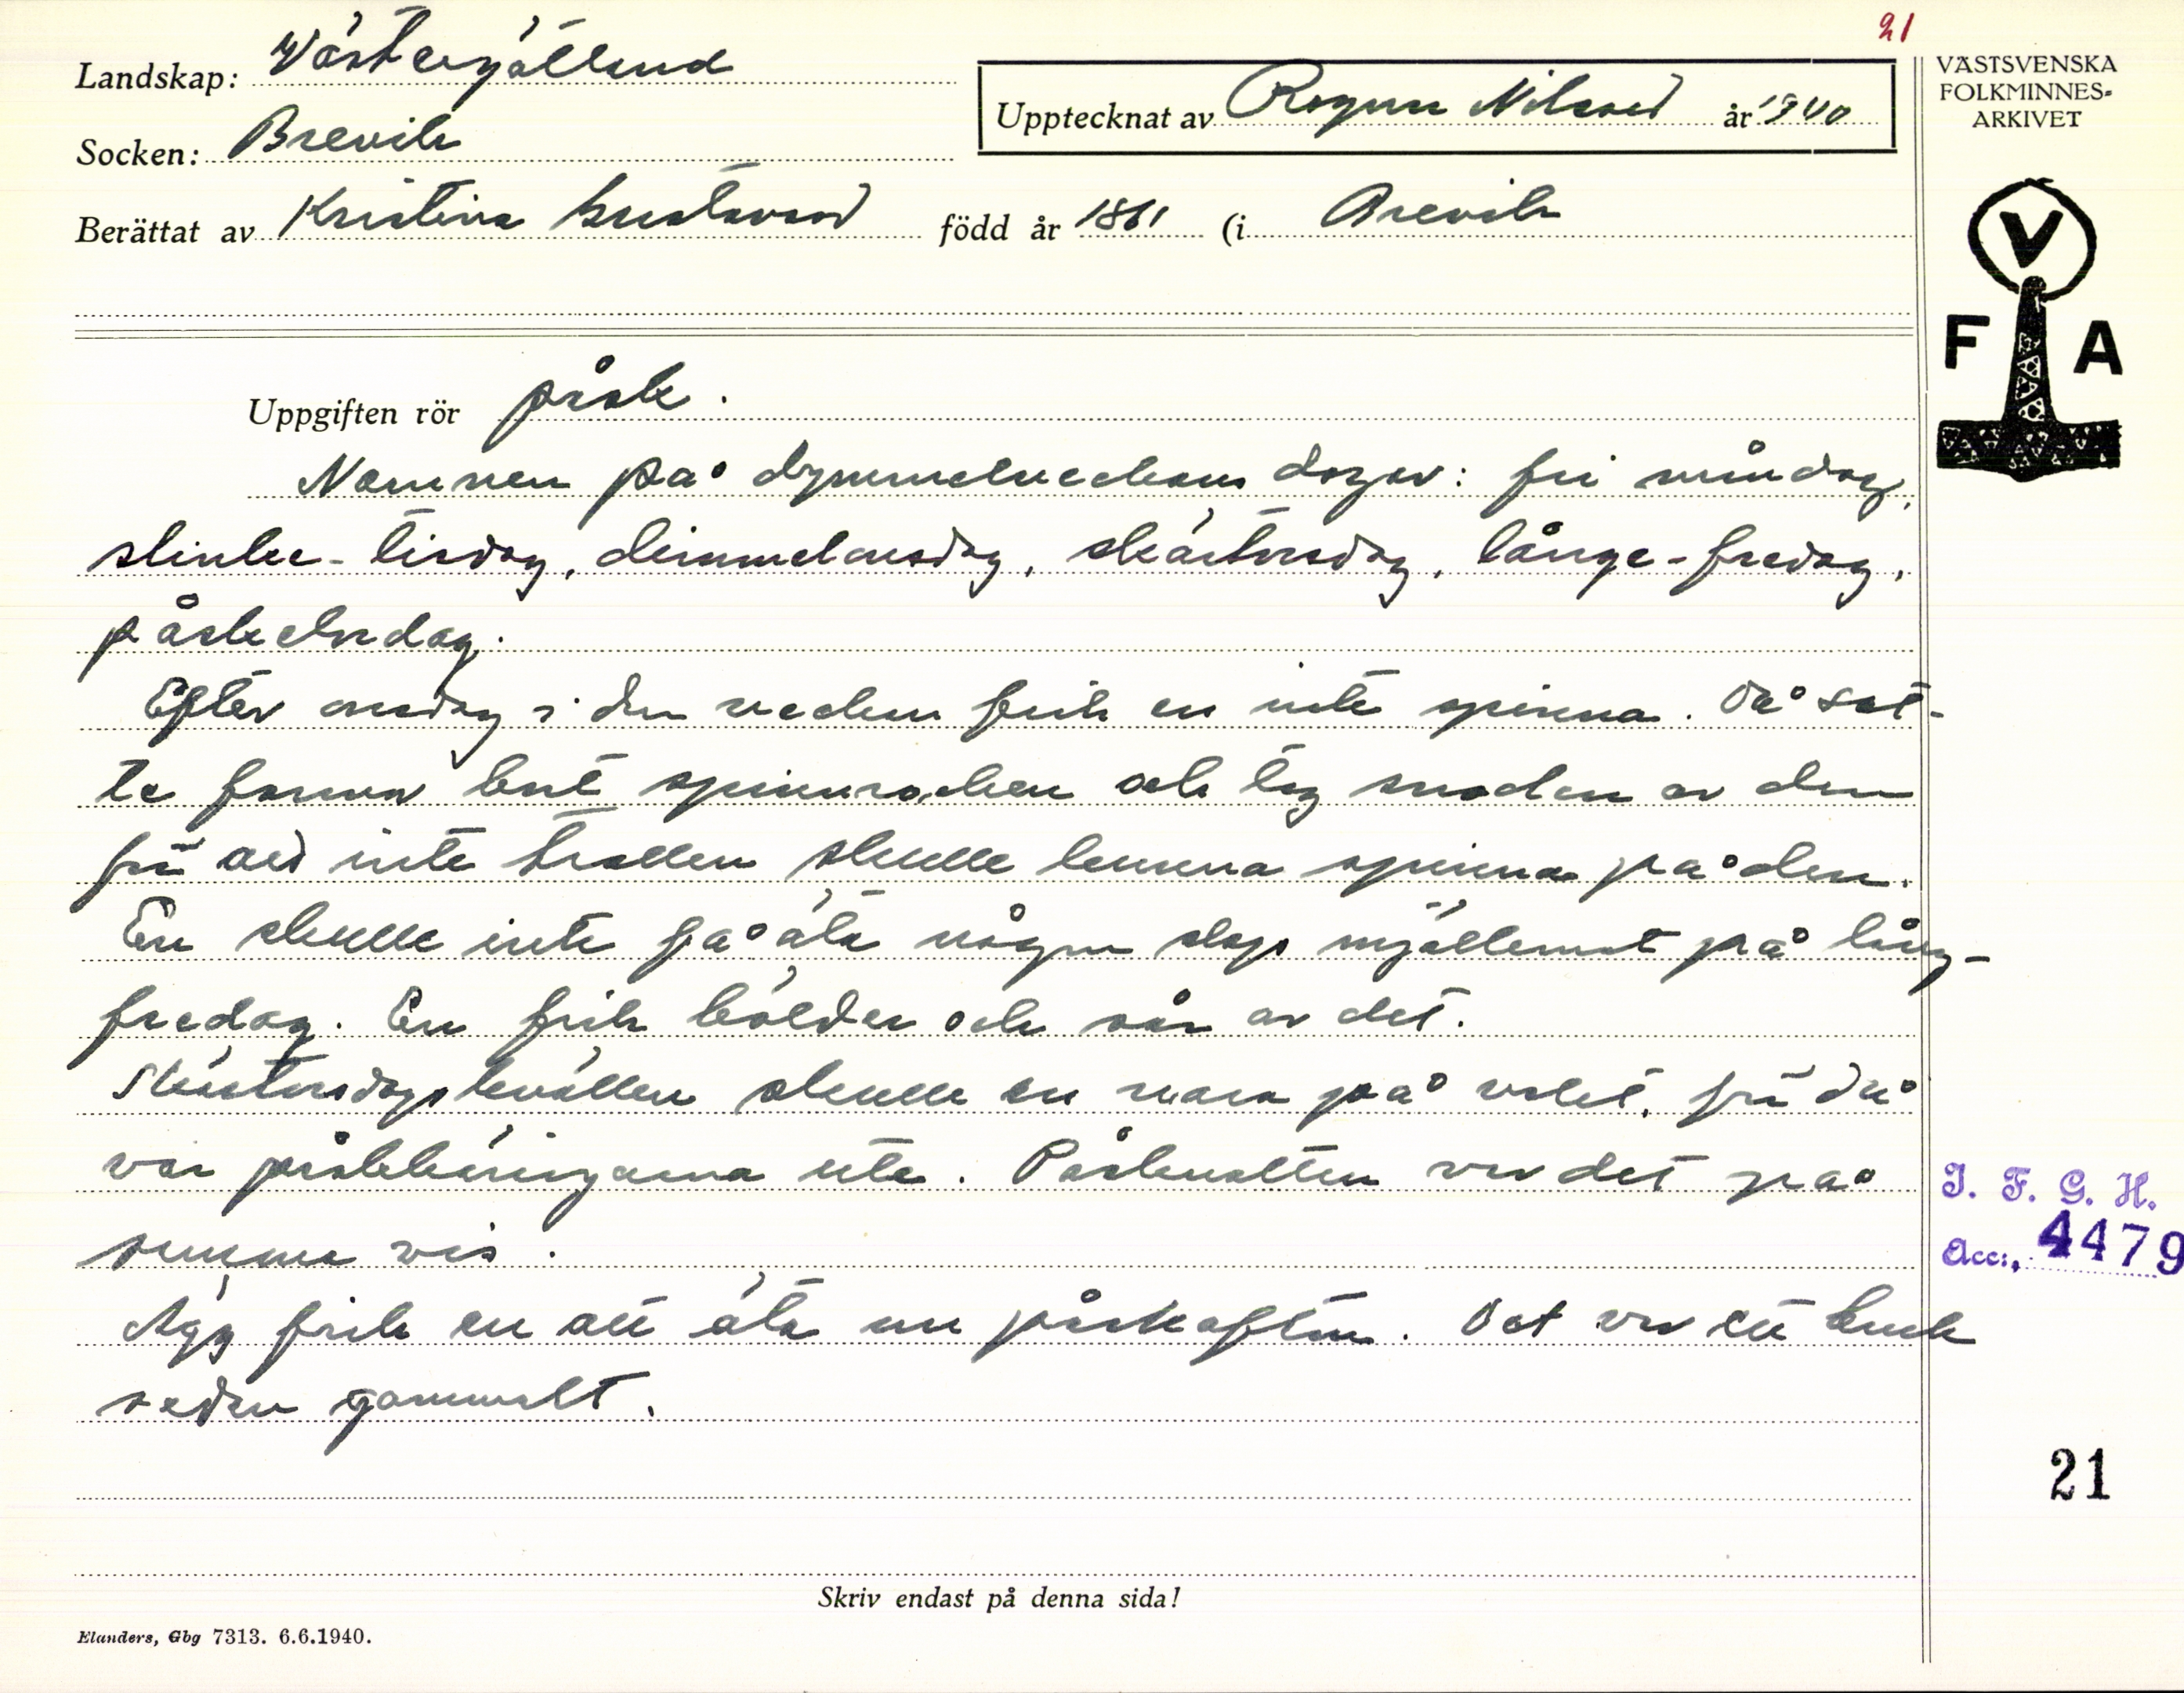 21
Landskap: Västergötland
Socken: Brevik
Upptecknat av Ragnar Nilsson år 1940
Berättat av Kristina Gustavsson född år 1861 (i Brevik
VÄSTSVENSKA
FOLKMINNES-
ARKIVET
V
F A
Uppgiften rör påsk.
Namnen på dymmelveckans dagar: fri måndag,
slinke-tisdag, dimmelonsdag, skärtorsdag, långe-fredag,
påskelördag.
Efter onsdag i den veckan feck en inte spinna. Då sat-
te farmor bort spinnrocken och tog snoden av den
för att inte trollen skulle kunna spinna på den.
En skulle inte få äta någon slags mjölkmat på lång-
fredag. En feck bölder och sår av det.
Skärtorsdagskvällen skulle en vara på vakt, för då
var påskkäringarna ute. Påsknatten var det på
samma vis.
Ägg feck en att äta om påskafton. Det var ett bruk
sedan gammalt.
I. F. G. H.
Acc:. 4479
21
Skriv endast på denna sida!
Elanders, Gbg 7313. 6.6.1940.